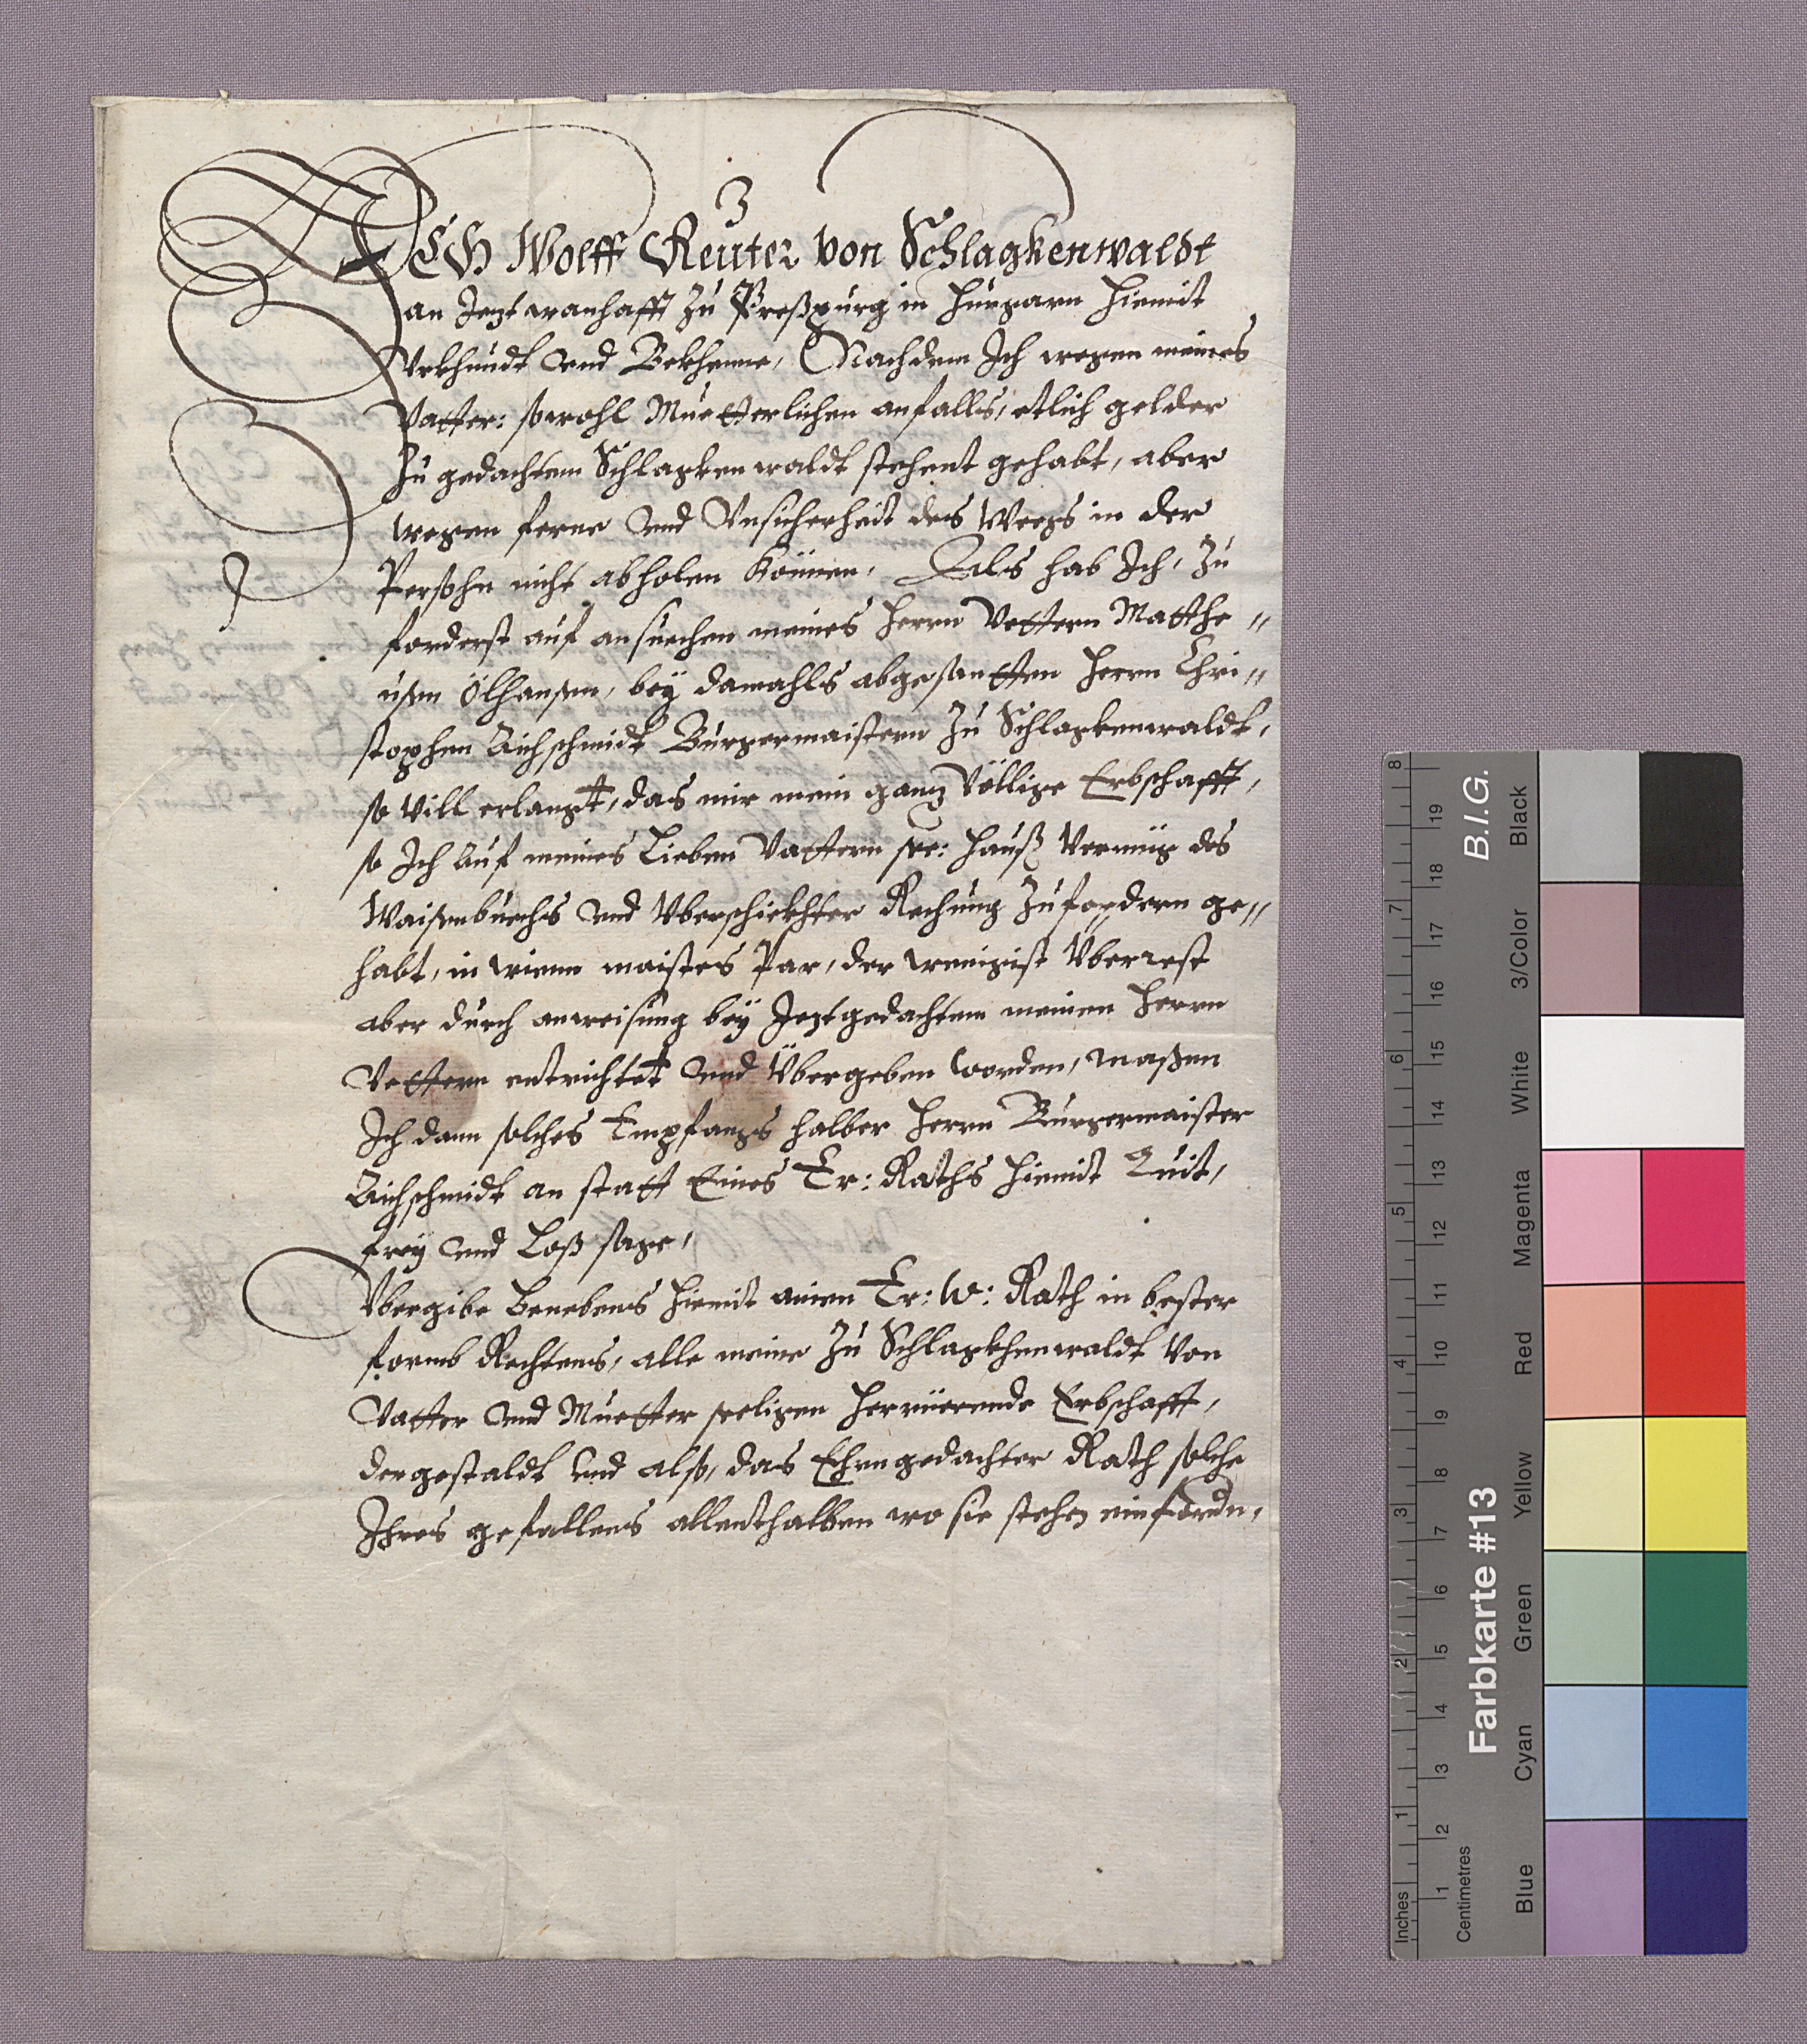 ICH Wolff Reuter von Schlagkenwaldt
an Jezt wanhafft zu Preßpurg in Hungarn hiemit
Vrkhundt vnd Bekhenne, Nachdem Ich wegen meines
Vatter: sowohl Muetterlichen anfalls, etlich gelder
zu gedachtem Schlagkenwaldt stehent gehabt, aber
wegen ferne vnd Vnsicherheit des Weegs in der
Persohn nicht abholen können, Als hab Ich, zu
forderst auf ansuechen meines Herrn Vettern Matthe"
ußen Ölhansen, bey damahls abgesantten Herrn Chri"
stophen Aichschmidt Burgermaistern zu Schlagkenwaldt,
so Vill erlangt, das mir mein ganz Völlige Erbschafft,
so Ich auf meines Lieben Vattern see: Hauß Vermüg des
Waisenbuechs vnd Vberschickhter Rechnung zufordern ge"
habt, in wienn maistes Par, der wenigist Überrest
aber durch anweisung bey Jeztgedachtem meinen Herrn
Vettern entrichtet vnd Übergeben worden, maßen
Ich dann solches Empfangs halber Herrn Burgermaister
Aichschmidt an statt Eines Er: Raths hiemit Quit,
frey vnd Loß sage,
Vbergibe benebens hiemit ainen Er: W: Rath in bester
formb Rechtens, alle meine zu Schlagkhenwaldt Von
Vatter vnd Muetter seeligen herrüerende Erbschafft,
dergestaldt vnd also, das Ehrngedachter Rath solche
Ihres gefallens allenthalben wo sie stehen einfordn,
Farbkarte #13
B.I.G.
Inches 1 2 3 4 5 6 7 8
Centimetres 1 2 3 4 5 6 7 8 9 10 11 12 13 14 15 16 17 18 19
Blue Cyan Green Yellow Red Magenta White 3/Color Black